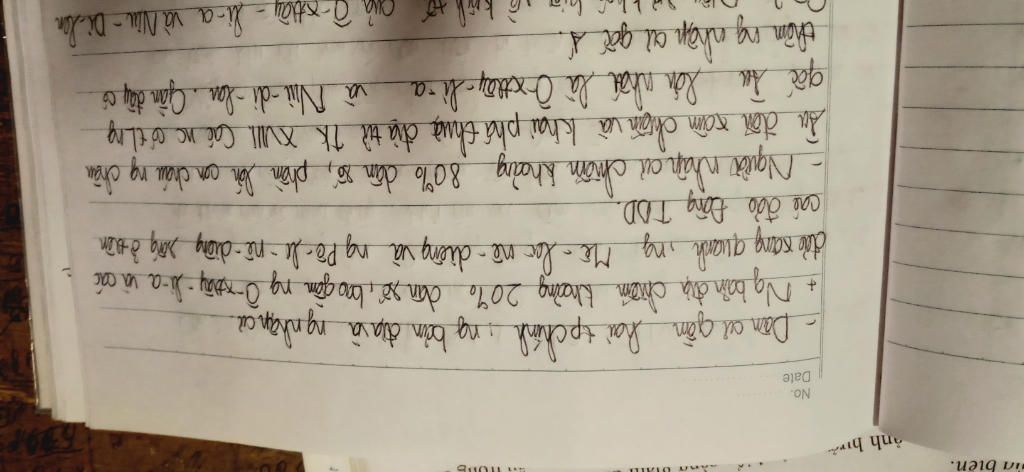 No. ........
Date ........
- Dân cư gồm hai tp chính : ng bản địa và ng nhập cư.
+ Ng bản địa chiếm khoảng 20% dân số, bao gồm ng Ô-xtrây-li-a và các
đảo xung quanh, ng Mê-la-nê-diêng và ng Pô-li-nê-diêng sống ở trên
các đảo Đông TBD.
- Người nhập cư chiếm khoảng 80% dân số, phần lớn con cháu ng châu
Âu đến xâm chiếm và khai phá thuộc địa từ TK XVIII. Các nc có tl ng
gốc Âu lớn nhất là Ô-xtrây-li-a và Niu-di-len. Gần đây có
thêm ng nhập cư gốc Á.
của Ô-xtrây-li-a và Niu-Di-len
ảnh hưở
ua biển.